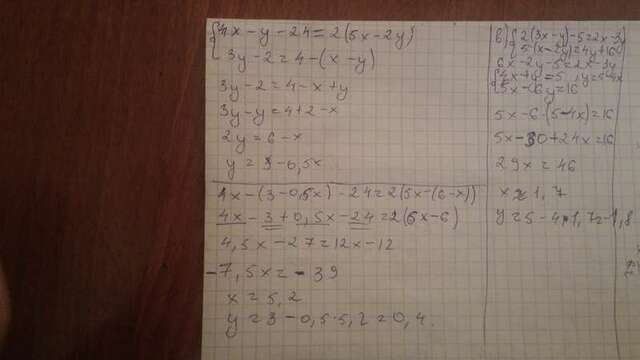 {4x-y-24=2(5x-2y)
{3y-2=4-(x-y)
3y-2=4-x+y
3y-y=4+2-x
2y=6-x
y=3-0,5x
4x-(3-0,5x)-24=2(5x-(6-x))
4x-3+0,5x-24=2(6x-6)
4,5x-27=12x-12
-7,5x=-39
x=5,2
y=3-0,5·5,2=0,4.
5x-6(5-4x)=16
5x-30+24x=16
29x=46